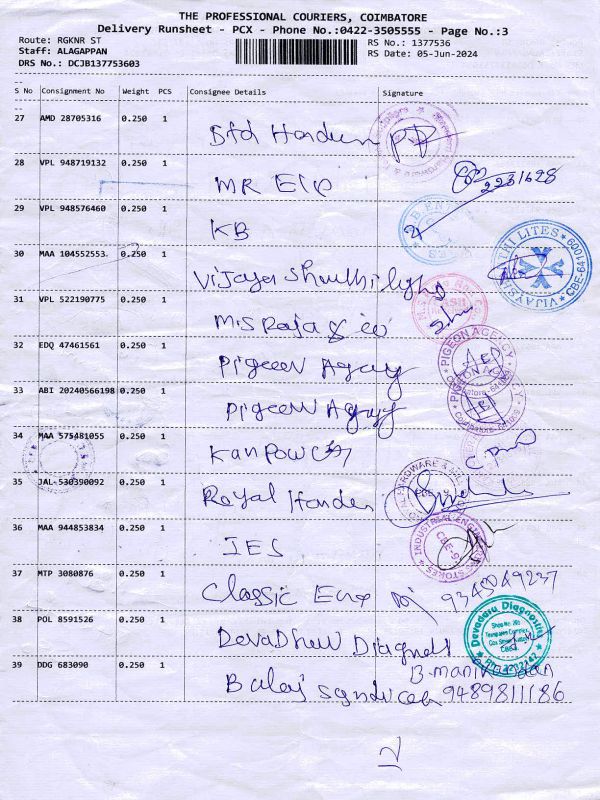 THE PROFESSIONAL COURIERS, COIMBATORE
Delivery Runsheet - PCX - Phone No.:0422-3505555 - Page No.:3
Route: RGKNR ST RS No.: 1377536
Staff: ALAGAPPAN RS Date: 05-Jun-2024
DRS No.: DCJB137753603
S No Consignment No Weight PCS Consignee Details Signature
27 AMD 28705316 0.250 1
28 VPL 948719132 0.250 1 MR
2231628
29 VPL 948576460 0.250 1 KB
30 MAA 104552553 0.250 1 Vijaya
31 VPL 522190775 0.250 1 M.S Raja & co
32 EDQ 47461561 0.250 1 Pigeon Agency
PIGEON AGENCY
33 ABI 20240566198 0.250 1 Pigeon Agency
34 MAA 575481055 0.250 1
35 JAL 530390092 0.250 1 Royal
36 MAA 944853834 0.250 1 IES
37 MTP 3080876 0.250 1 Classic
9345049237
38 POL 8591526 0.250 1
Devadasu Diagnostic
39 DDG 683090 0.250 1 Balaj
9489811186